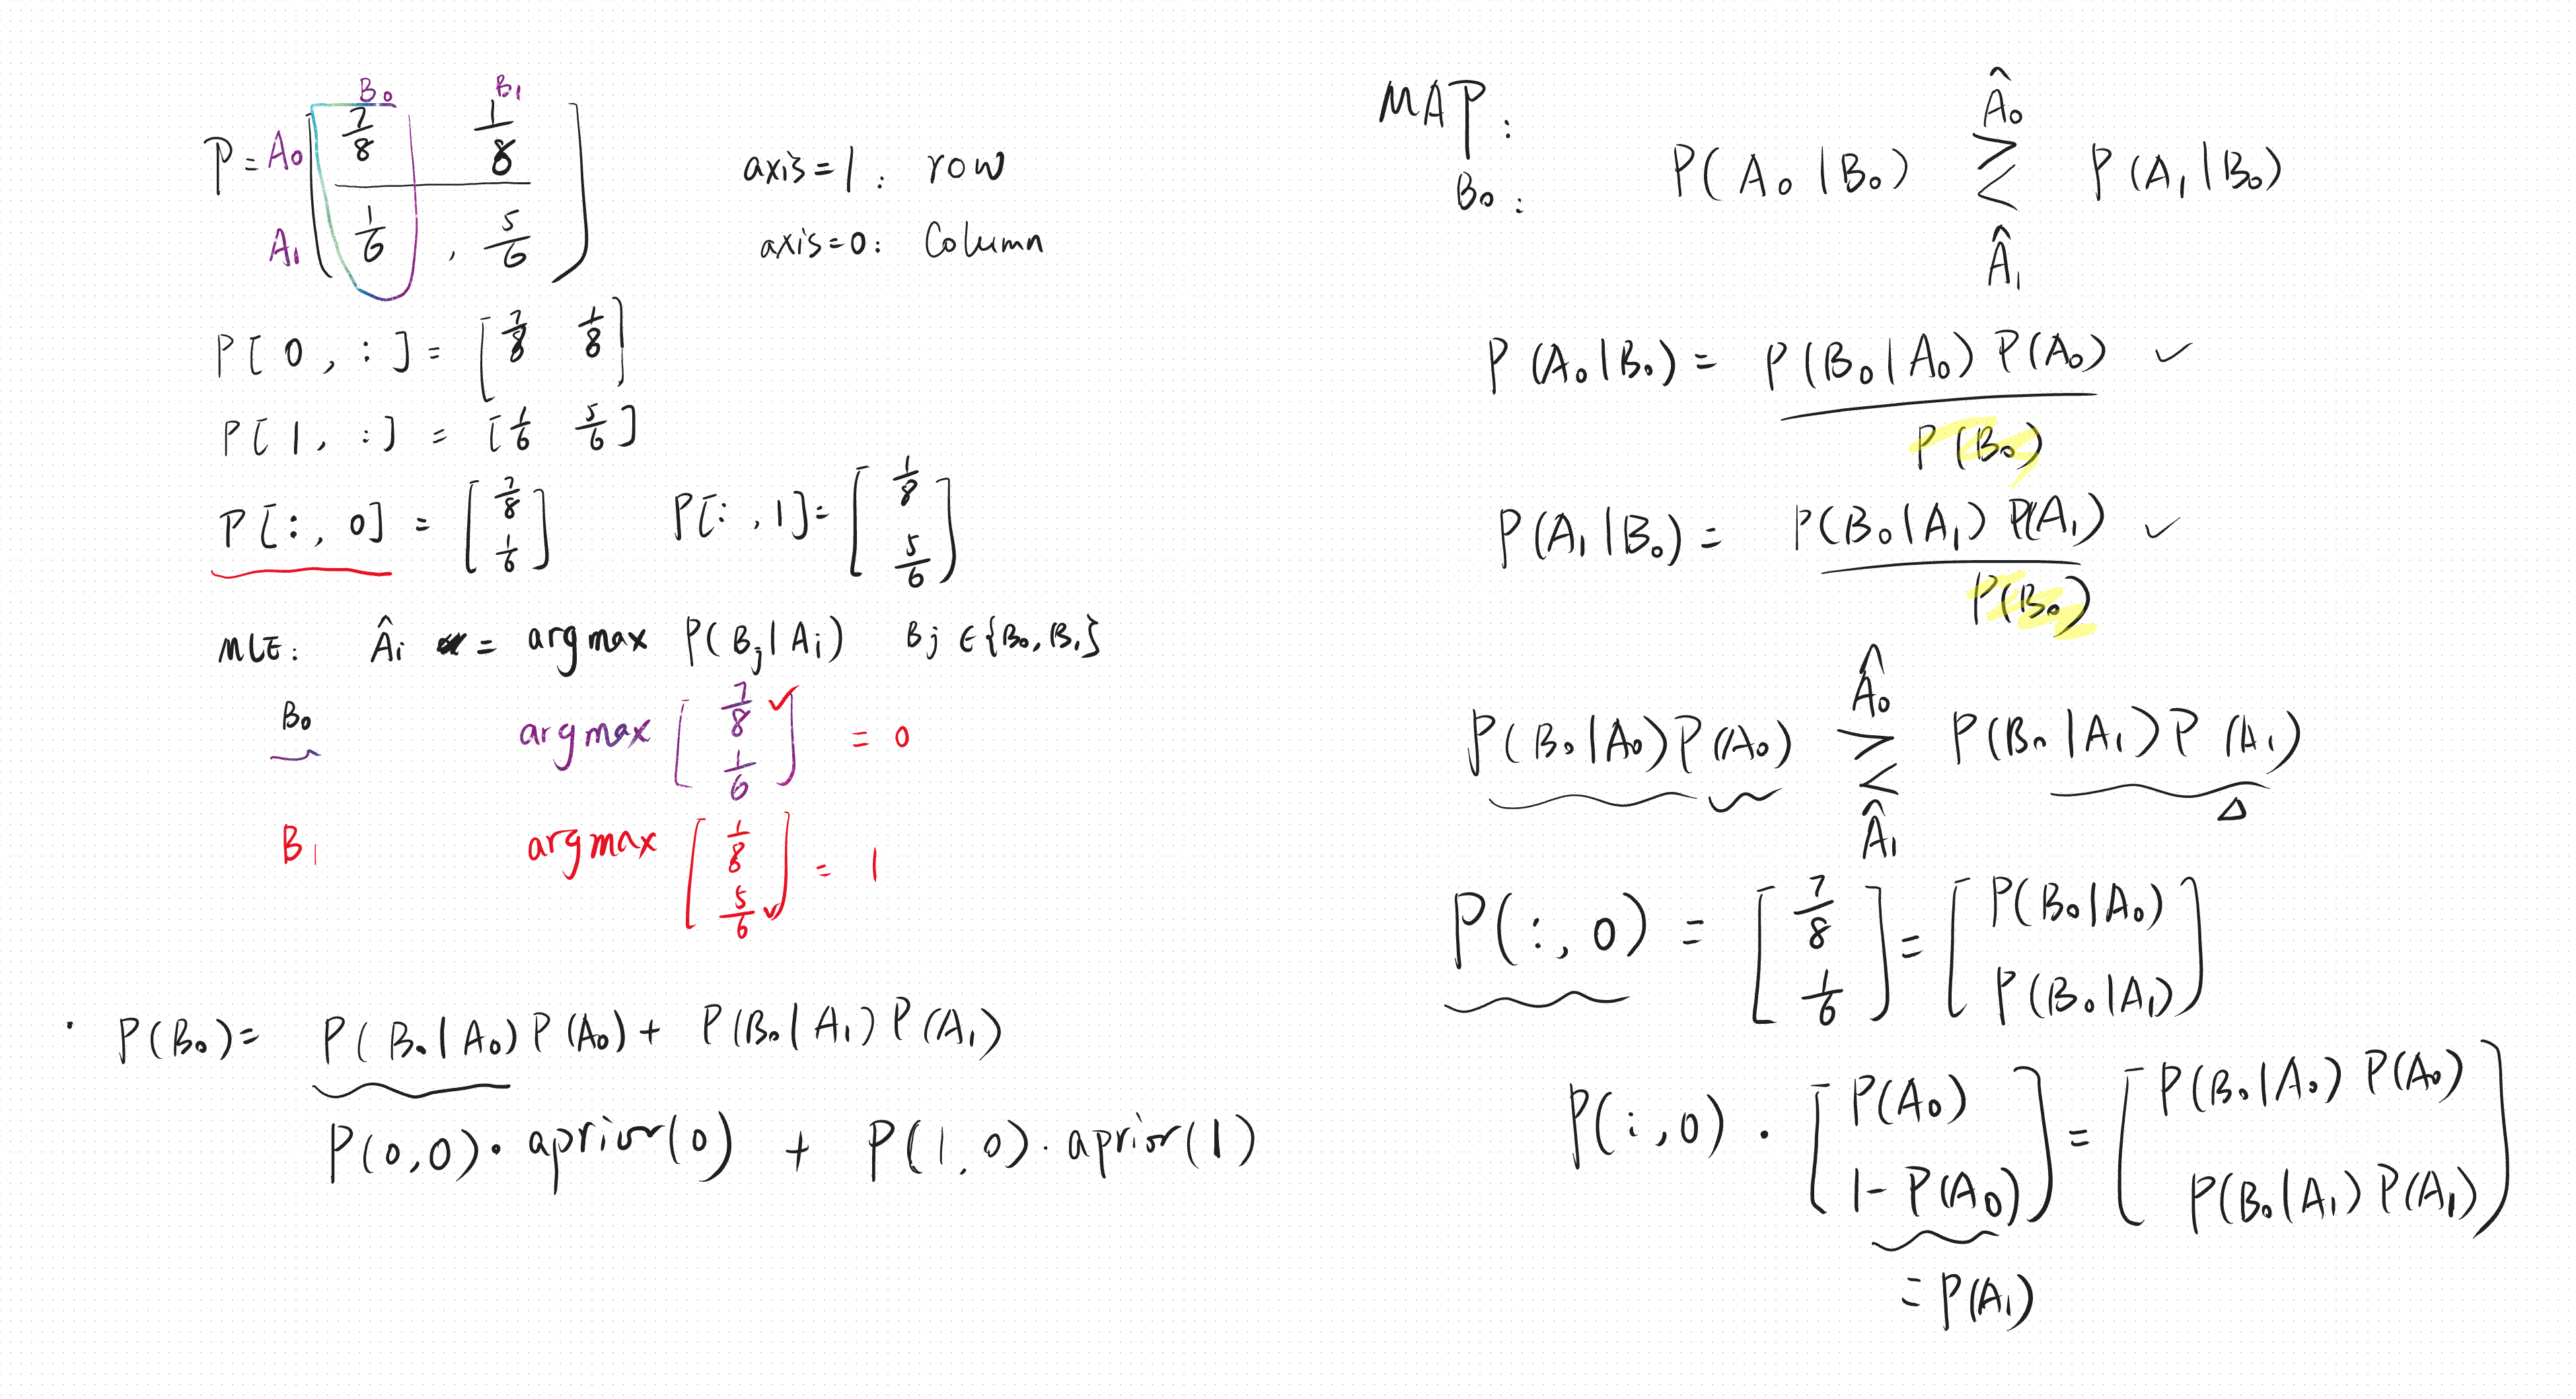 B₀ B₁
P = A₀ [ 7/8 1/8 ]
A₁ [ 1/6 , 5/6 ]
axis=1: row
axis=0: Column
P[0,:] = [7/8 1/8]
P[1,:] = [1/6 5/6]
P[:,0] = [7/8 1/6] P[:,1] = [1/8 5/6]
MLE: Âi = argmax P(Bj|Ai) Bj ∈ {B₀,B₁}
B₀ argmax [7/8 ✓ 1/6] = 0
B₁ argmax [1/8 5/6 ✓] = 1
· P(B₀) = P(B₀|A₀) P(A₀) + P(B₀|A₁) P(A₁)
P(0,0)· aprior(0) + P(1,0)· aprior(1)
MAP:
B₀: P(A₀|B₀) Â₀ ≷ Â₁ P(A₁|B₀)
P(A₀|B₀) = P(B₀|A₀) P(A₀) / P(B₀) ✓
P(A₁|B₀) = P(B₀|A₁) P(A₁) / P(B₀) ✓
P(B₀|A₀) P(A₀) Â₀ ≷ Â₁ P(B₀|A₁) P(A₁)
△
P(:,0) = [7/8 1/6] = [P(B₀|A₀) P(B₀|A₁)]
P(:,0) · [P(A₀) 1-P(A₀)] = [P(B₀|A₀) P(A₀) P(B₀|A₁) P(A₁)]
= P(A₁)